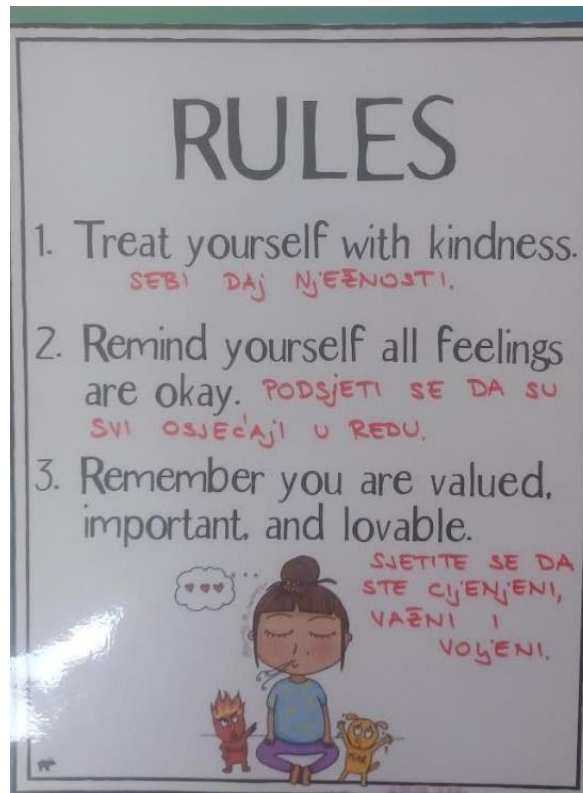 RULES
1. Treat yourself with kindness.
SEBI DAJ NJEŽNOSTI.
2. Remind yourself all feelings
are okay. PODSJETI SE DA SU
SVI OSJEĆAJI U REDU.
3. Remember you are valued,
important, and lovable.
SJETITE SE DA
STE CIJENJENI,
VAŽNI I
VOLJENI.
FEAR